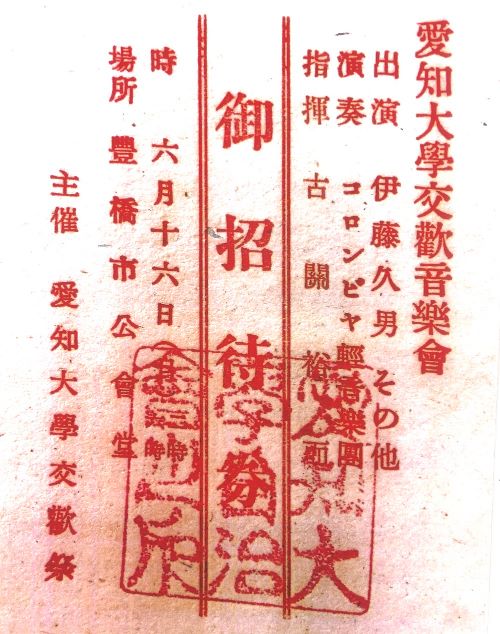 愛知大學交歡音樂會
出演 伊藤久男 その他
演奏 コロンビヤ輕音樂團
指揮 古關裕而
御招待券
時 六月十六日(日)
場所 豐橋市公會堂
主催 愛知大學交歡祭
愛知大
學自治